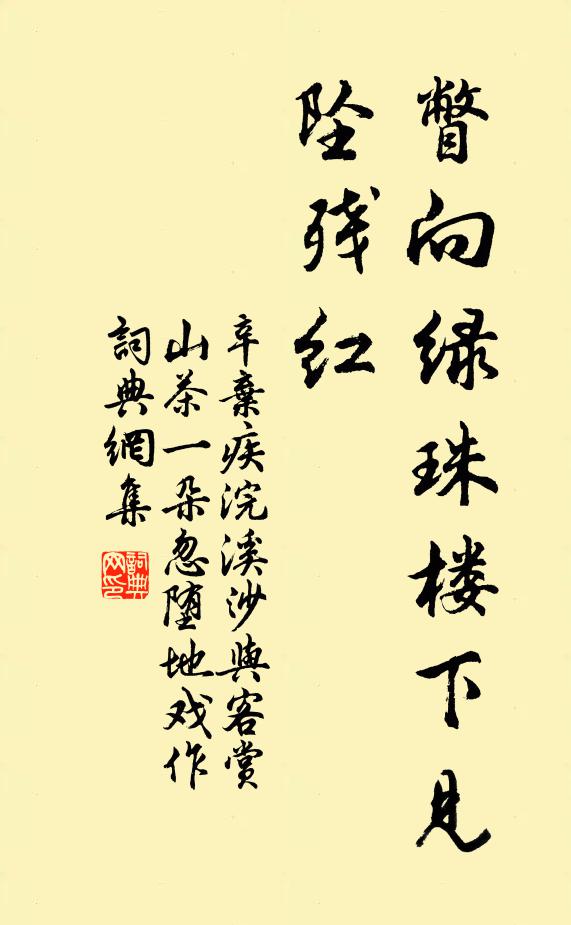 瞥向绿珠楼下见
坠残红
辛棄疾浣溪沙與客赏
山茶一朵忽堕地戏作
詞典網集
詞典
网印